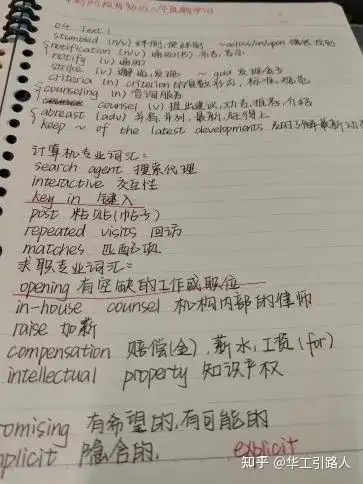 04 Text 1
stumbled (n/v) 绊倒,使绊倒 ~across/on/upon 偶然,找到
notification (n/v) 通知(书) 布告,告示
notify (v) 通知
strike (v) 发现 ~ gold 发现金子
criteria (n) criterion的复数形式,标准,规范
counseling (n) 咨询服务
counsel (v) 提出建议,劝告,推荐,介绍
abreast (adv) 并肩,并列,最新,赶得上
keep ~ of the latest developments 及时了解最新动态
计算机专业词汇:
search agent 搜索代理
interactive 交互性
key in 键入
post 粘贴(帖子)
repeated visits 回访
matches 匹配项
求职专业词汇:
opening 有空缺的工作或职位
in-house counsel 机构内部的律师
raise 加薪
compensation 赔偿(金),薪水,工资(for)
intellectual property 知识产权
omising 有希望的,有可能的
plicit 隐含的. explicit
知乎 @华工引路人